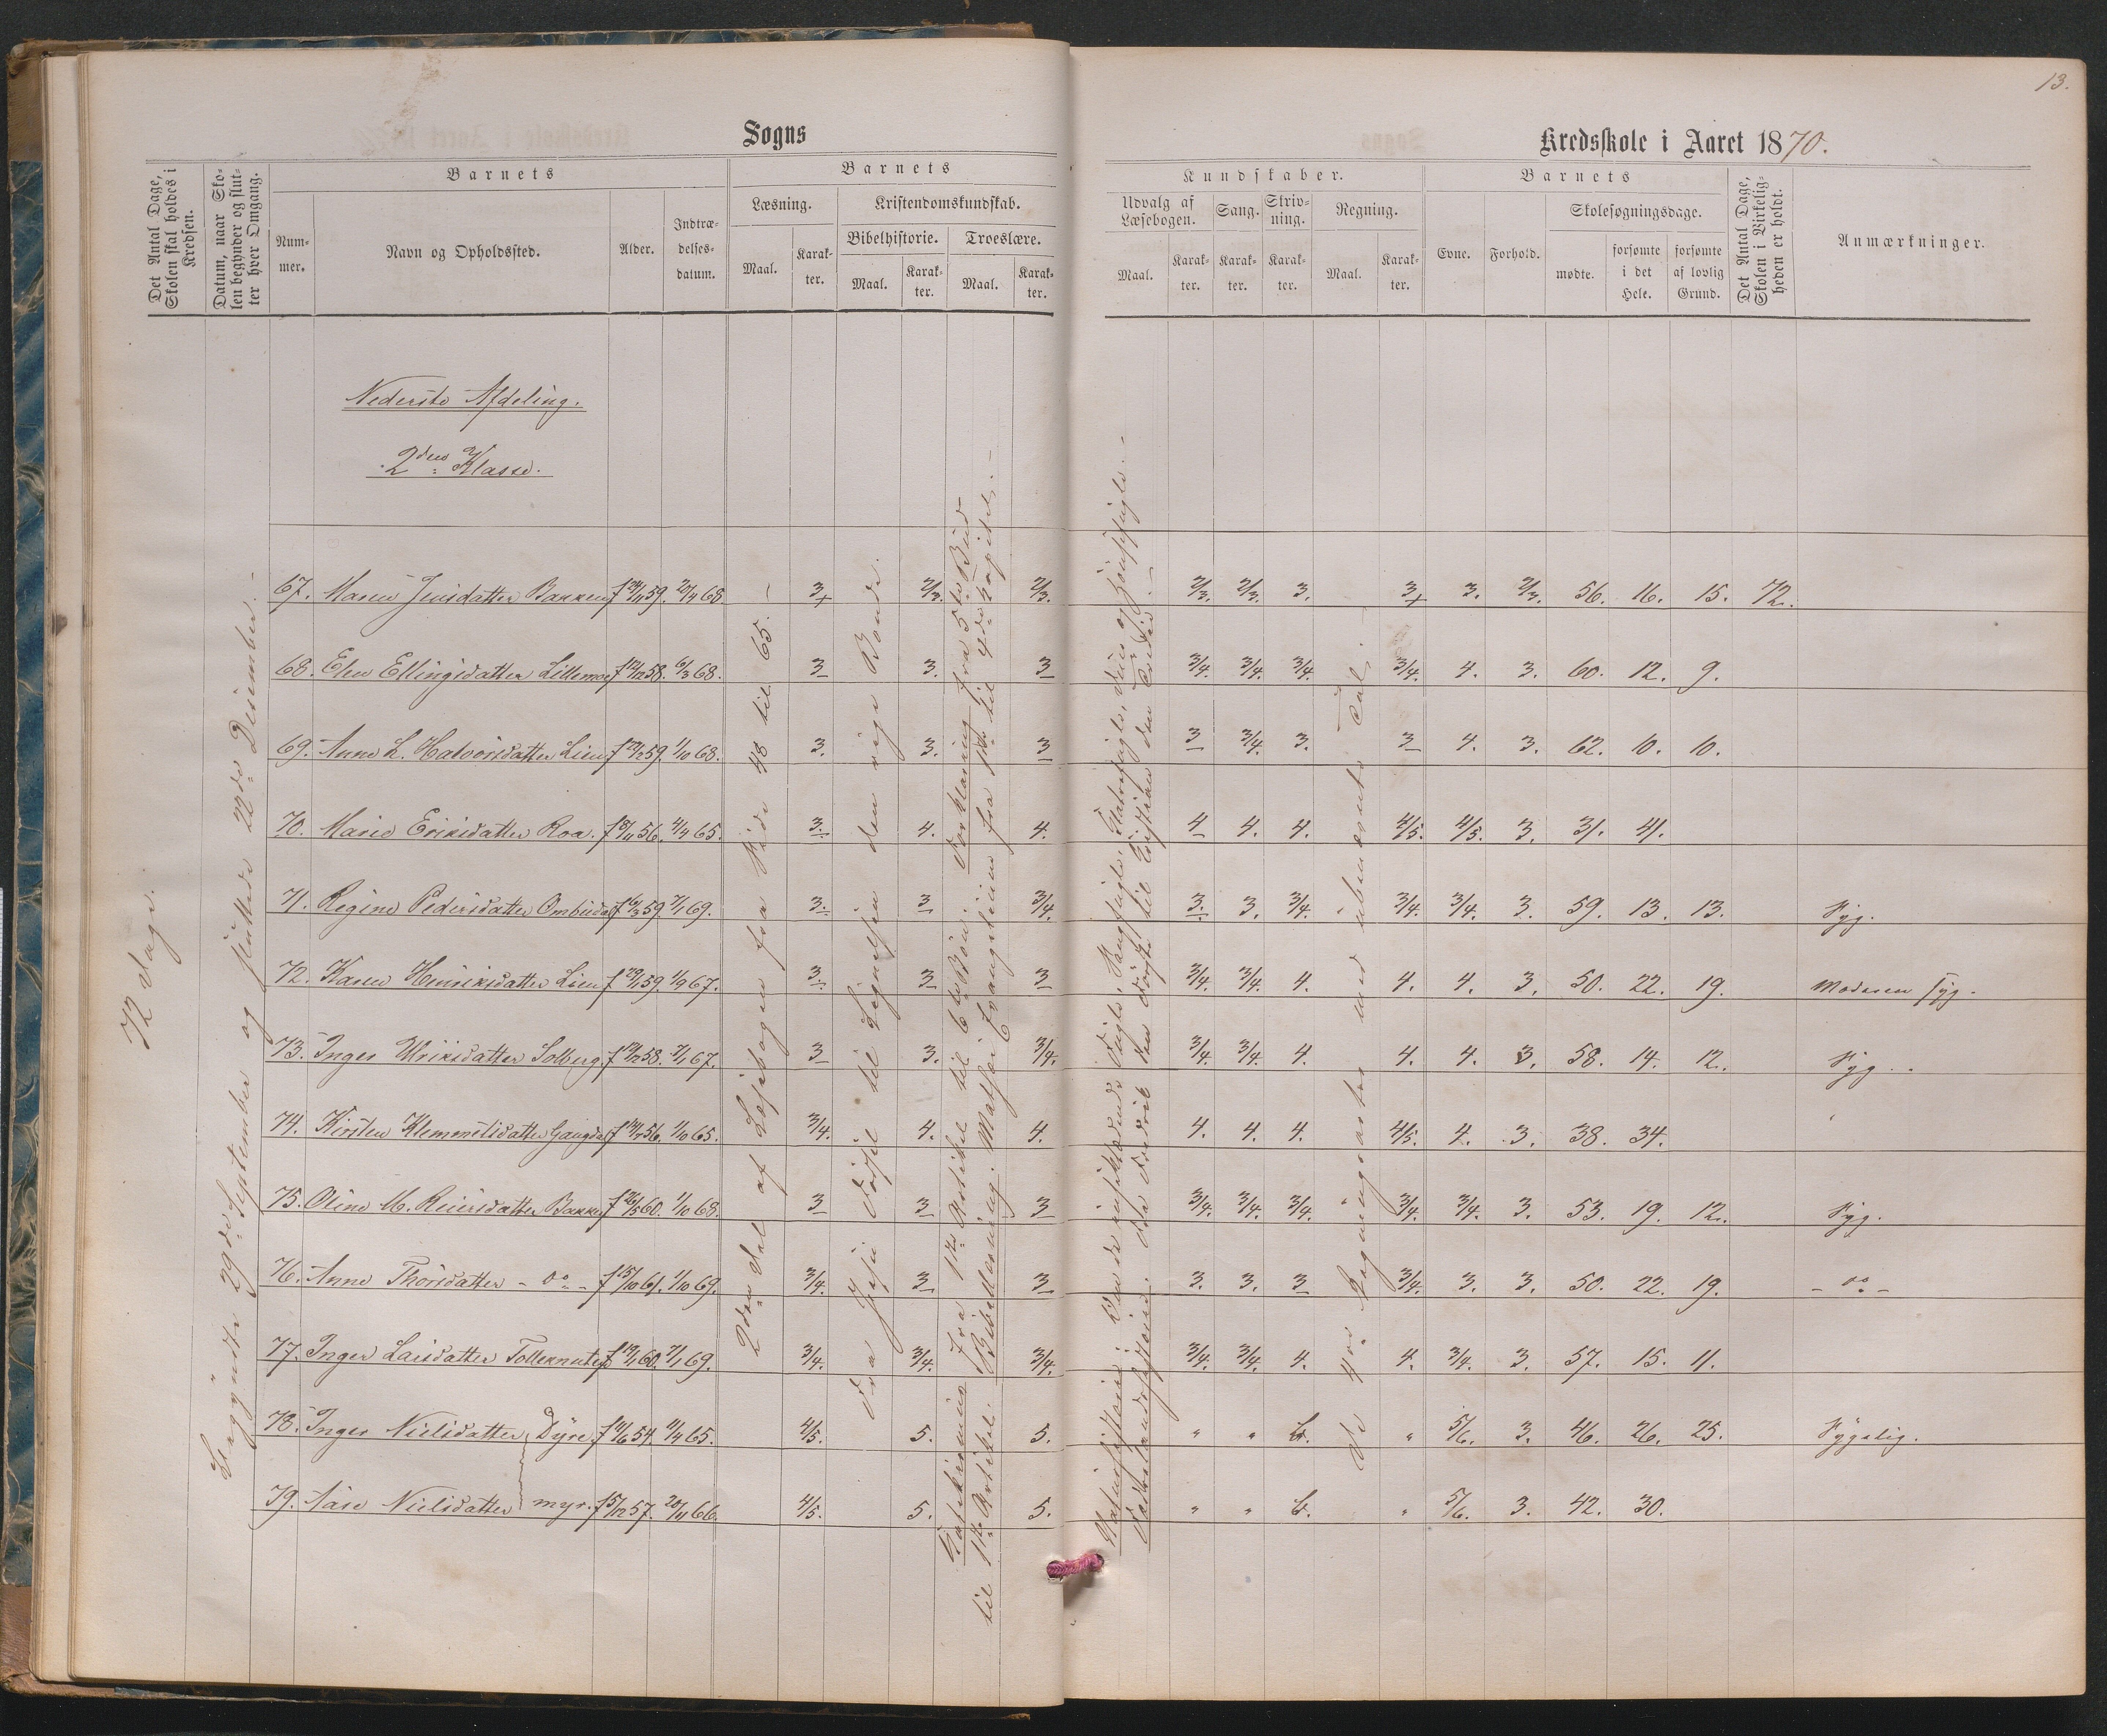 13.
Sogns
Kredsskole i Aaret 1870.
Det Antal Dage, Skolen skal holdes i Kredsen.
Datum, naar Skolen begynder og slutter hver Omgang.
Barnets
Nummer.
Navn og Opholdssted.
Alder.
Indtrædelsesdatum.
Barnets
Læsning.
Maal.
Karakter.
Kristendomskundskab.
Bibelhistorie.
Maal.
Karakter.
Troeslære.
Maal.
Karakter.
Kundskaber.
Udvalg af Læsebogen.
Maal.
Karakter.
Sang.
Karakter.
Skrivning.
Karakter.
Regning.
Maal.
Karakter.
Barnets
Evne.
Forhold.
Skolesøgningsdage.
mødte.
forsømte i det Hele.
forsømte af lovlig Grund.
Det Antal Dage, Skolen i Virkeligheden er holdt.
Anmærkninger.
Nederste Afdeling.
2den Klasse.
72 Dage.
Begyndte 29de September og sluttede 22de December.
2den Del af Læsebogen fra Side 48 til 65.
Fra Jesu Dødsel til Lignelsen den rige Bonde.
Fra 1ste Artikel til 6te Bøn. Forklaring fra 5te Bud
til 1ste Artikel. Bibellæsning. Mathæi Evangelium fra 1ste til 4de Kapitel.
Naturhistorie:
Fædrelandshistorie:
De 4 Regningsarter med ubenævnte Tal.
67. Maren Jensdatter Bakken f 24/11 59. 20/4 68. 3+ 2/3. 2/3. 2/3. 2/3. 3. 3+ 3. 2/3. 56. 16. 15. 72.
68. Elen Ellingsdatter Lillemoe f 12/12 58. 6/3 68. 3 3. 3 3/4. 3/4. 3/4 3/4. 4. 3. 60. 12. 9.
69. Anne L. Halvorsdatter Lien f 29/12 59. 1/10 68. 3. 3. 3 3 3/4. 3. 3 4. 3. 62. 10. 10.
70. Marie Eriksdatter Roa. f 18/11 56. 4/4 65. 3. 4. 4. 4 4. 4. 4/5. 4/5. 3. 31. 41.
71. Regine Pedersdatter Ombudsd f 16/3 59. 7/1 69. 3. 3 3/4. 3. 3. 3/4. 3/4. 3/4. 3. 59. 13. 13. Syg.
72. Karen Henriksdatter Lien f 29/1 59. 1/9 67. 3. 3 3 3/4. 3/4. 4. 4. 4. 3. 50. 22. 19. Moderen syg.
73. Inger Ulriksdatter Solberg f 12/12 58. 7/1 67. 3 3. 3/4. 3/4. 3/4. 4. 4. 4. 3. 58. 14. 12. Syg.
74. Kirsten Klemmetsdatter Gangdal 56. 1/10 65. 3/4. 4. 4. 4. 4. 4. 4/5. 4. 3. 38. 34.
75. Oline M. Reiersdatter Bakke f 26/5 60. 1/10 68. 3 3 3 3/4. 3/4. 3/4. 3/4. 3/4. 3. 53. 19. 12. Syg.
76. Anne Thorsdatter - do - f 15/10 61. 1/10 69. 3/4. 3 3 3. 3. 3 3/4. 3. 3. 50. 22. 19. - do -
77. Inger Larsdatter Tolleknuten f 19/1 60. 7/1 69. 3/4. 3/4. 3/4. 3/4. 3/4. 4. 4. 3/4. 3. 57. 15. 11.
78. Inger Nielsdatter Dyre f 11/6 54. 4/4 65. 4/5. 5. 5. " " 6. " 5/6. 3. 46. 26. 25. Sygelig.
79. Aase Nielsdatter myr. f 5/12 57. 20/11 66. 4/5. 5. 5. " " 6. " 5/6. 3. 42. 30.